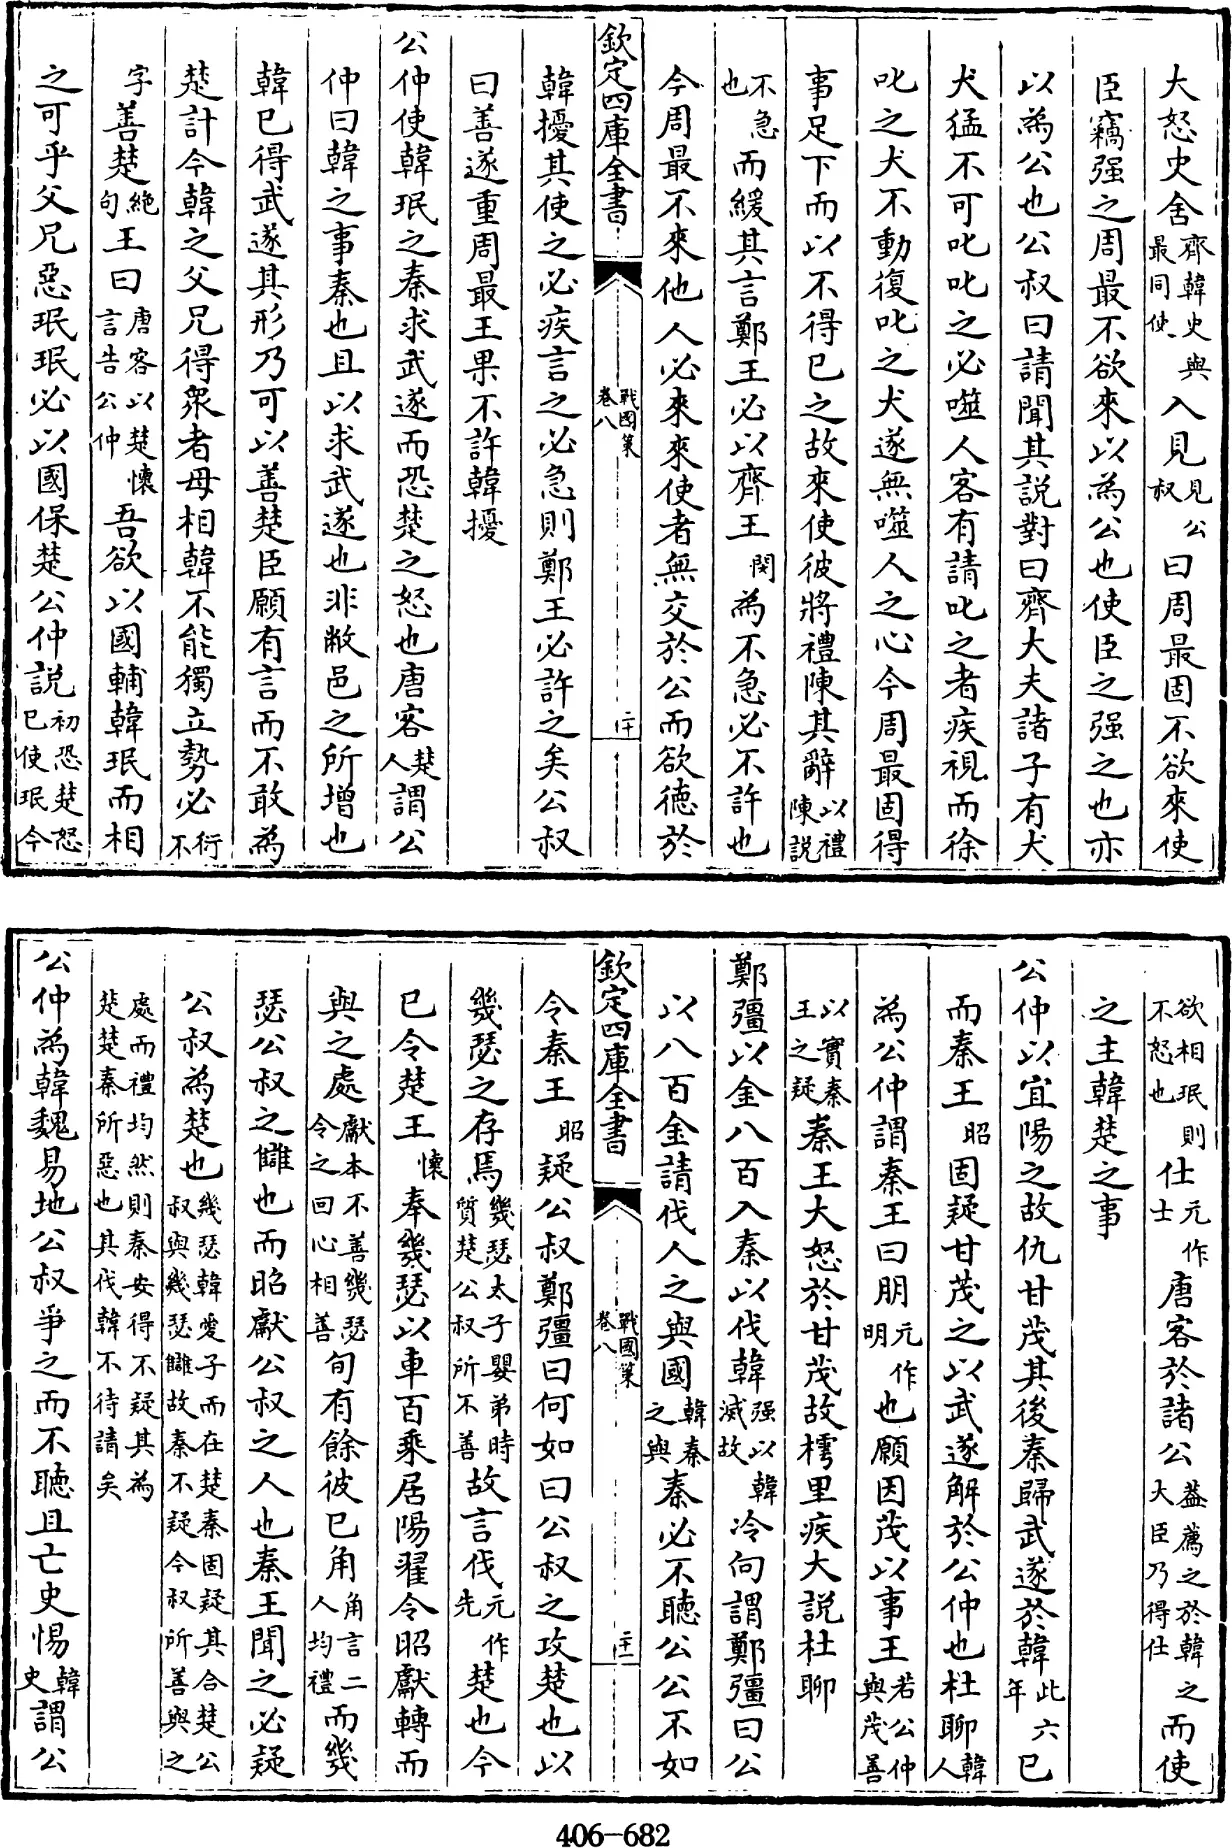 大怒史舍齊韓史與最同使入見見公叔曰周最固不欲來使
臣竊强之周最不欲來以為公也使臣之强之也亦
以為公也公叔曰請聞其説對曰齊大夫諸子有犬
犬猛不可叱叱之必噬人客有請叱之者疾視而徐
叱之犬不動復叱之犬遂無噬人之心今周最固得
事足下而以不得已之故來使彼將禮陳其辭以禮陳説
不急也而緩其言鄭王必以齊王閔為不急必不許也
今周最不來他人必來來使者無交於公而欲德於
欽定四庫全書
戰國策
卷八
二十
韓擾其使之必疾言之必急則鄭王必許之矣公叔
曰善遂重周最王果不許韓擾
公仲使韓珉之秦求武遂而恐楚之怒也唐客楚人謂公
仲曰韓之事秦也且以求武遂也非敝邑之所增也
韓已得武遂其形乃可以善楚臣願有言而不敢為
楚計今韓之父兄得衆者毋相韓不能獨立勢必衍不
字善楚絶句王曰唐客以楚懷言告公仲吾欲以國輔韓珉而相
之可乎父兄惡珉珉必以國保楚公仲説初恐楚怒已使珉今
欲相珉則不怒也仕元作士唐客於諸公葢薦之於韓大臣乃得仕之而使
之主韓楚之事
公仲以宜陽之故仇甘茂其後秦歸武遂於韓此六年已
而秦王昭固疑甘茂之以武遂解於公仲也杜聊韓人
為公仲謂秦王曰朋元作明也願因茂以事王若公仲與茂善
以實秦王之疑秦王大怒於甘茂故樗里疾大説杜聊
鄭彊以金八百入秦以伐韓强以韓滅故冷向謂鄭彊曰公
以八百金請伐人之與國韓秦之與秦必不聽公公不如
欽定四庫全書
戰國策
卷八
二十一
令秦王昭疑公叔鄭彊曰何如曰公叔之攻楚也以
幾瑟之存焉幾瑟太子嬰弟時質楚公叔所不善故言伐元作先楚也今
已令楚王懷奉幾瑟以車百乘居陽翟令昭獻轉而
與之處獻本不善幾瑟令之回心相善旬有餘彼已角角言二人均禮而幾
瑟公叔之讎也而昭獻公叔之人也秦王聞之必疑
公叔為楚也幾瑟韓愛子而在楚秦固疑其合楚公叔與幾瑟讎故秦不疑今叔所善與之
處而禮均然則秦安得不疑其為楚楚秦所惡也其伐韓不待請矣
公仲為韓魏易地公叔爭之而不聽且亡史惕韓史謂公
406-682